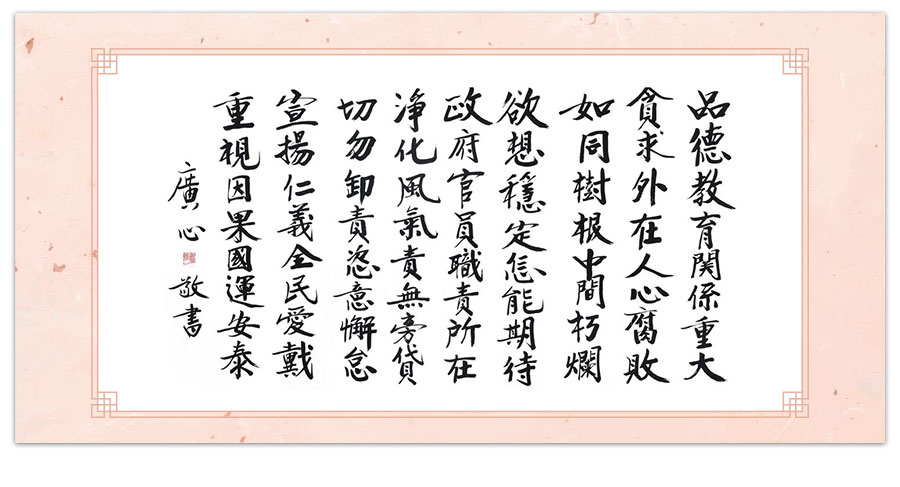 品德教育関係重大
貪求外在人心腐敗
如同樹根中間朽爛
欲想穩定怎能期待
政府官員職責所在
淨化風氣責無旁貸
切勿卸責恣意懈怠
宣揚仁義全民愛戴
重視因果國運安泰
廣心 敬書